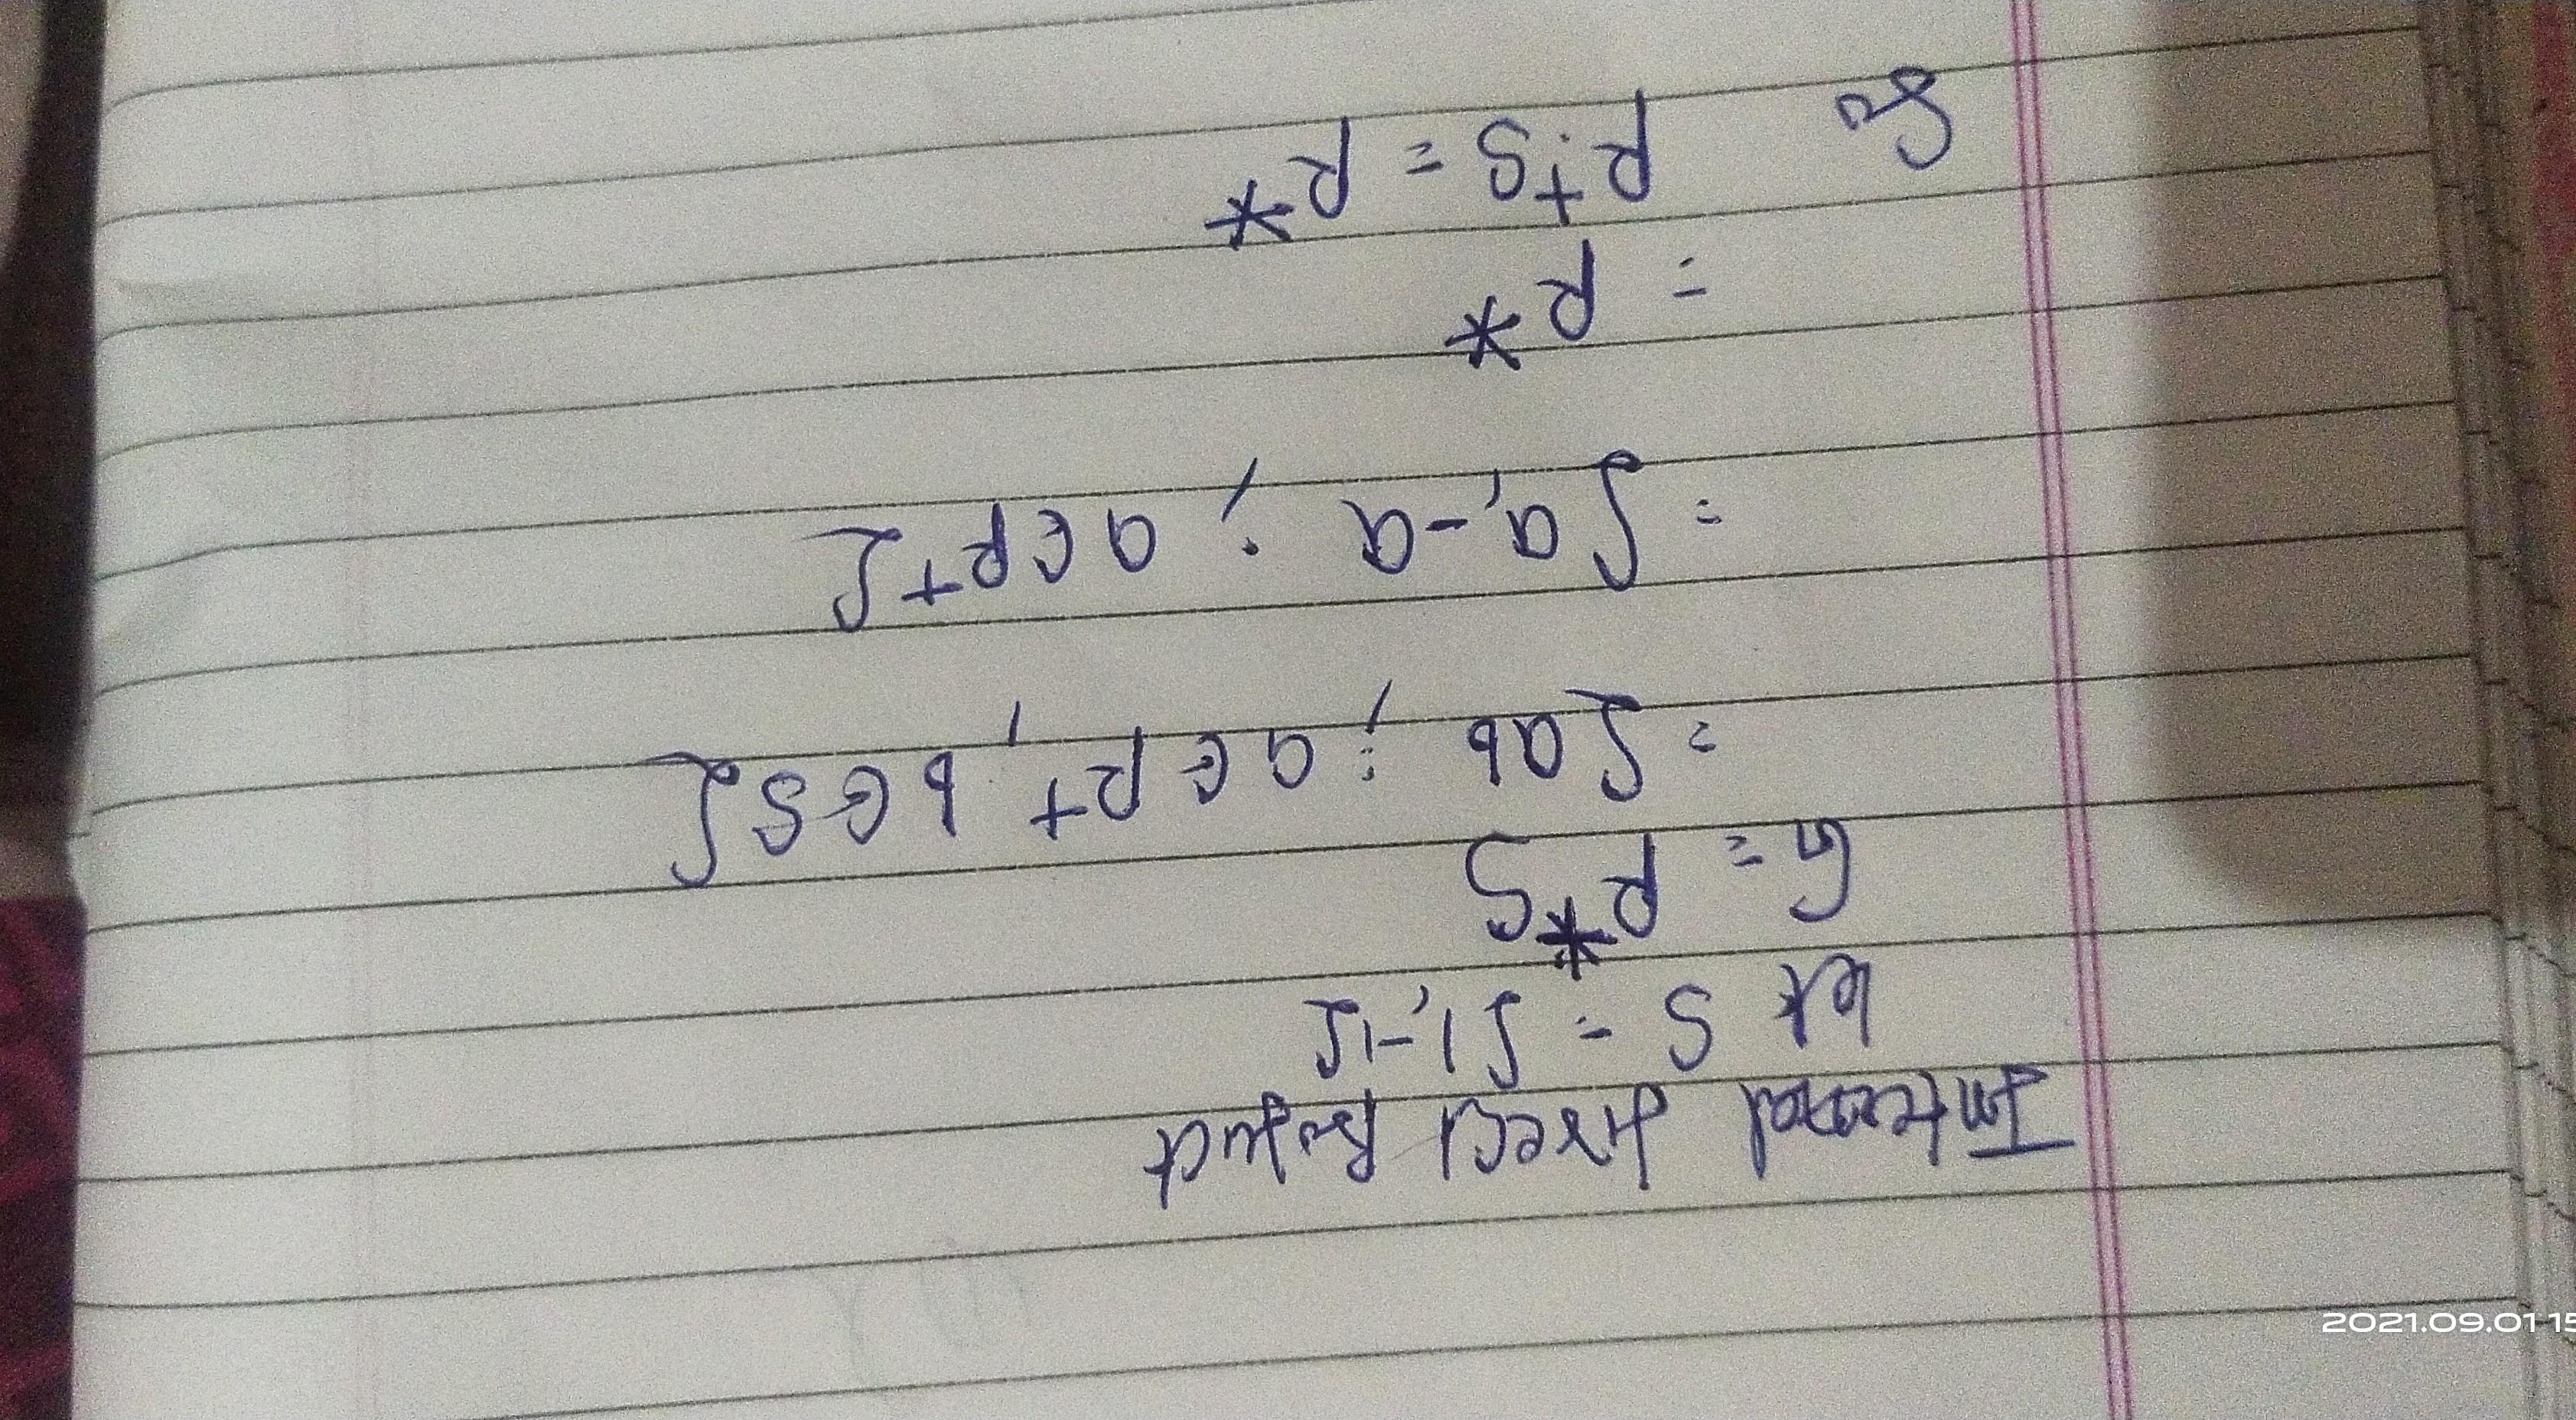 Internal direct Product
let S = {1,-1}
G = R*S
= {ab ; a ∈ R+, b ∈ S}
= {a,-a ; a ∈ R+}
= R*
So R+S = R*
2021.09.01 15